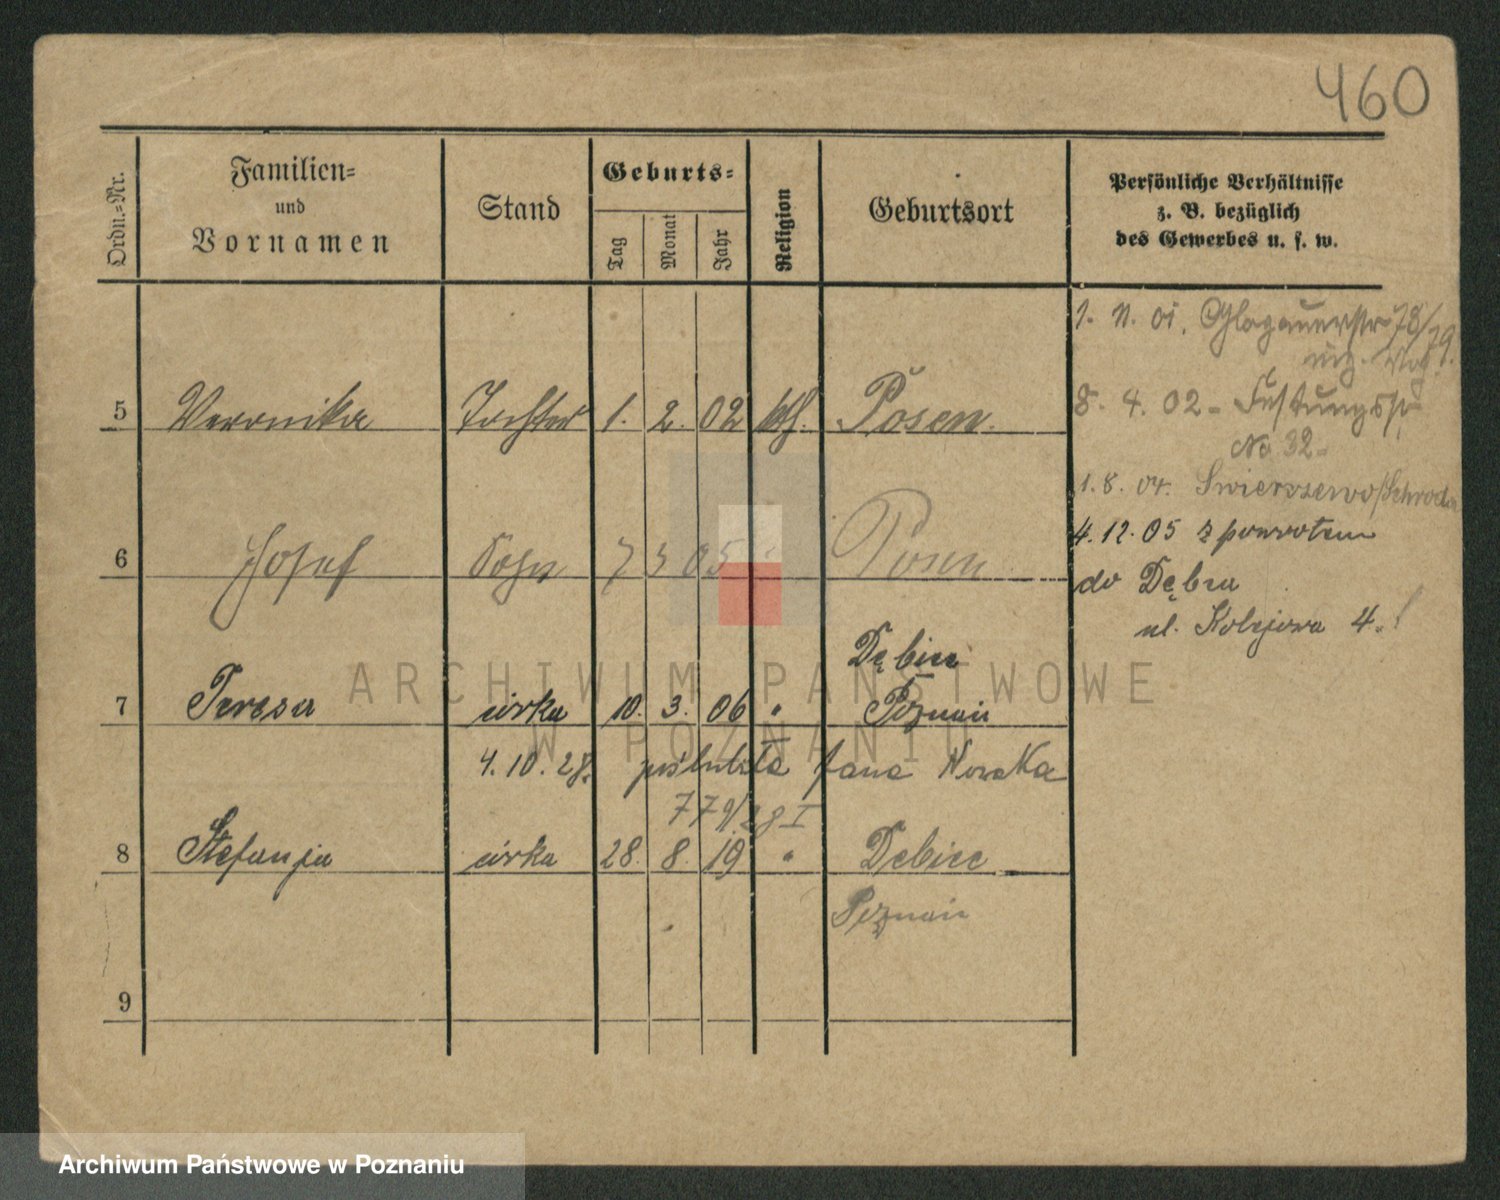 460
Ordn.=Nr.
Familien=
und
Vornamen
Stand
Geburts=
Tag
Monat
Jahr
Religion
Geburtsort
Persönliche Verhältnisse
z. B. bezüglich
des Gewerbes u. s. w.
1. 11. 01. Glogauerstr 78/79.
8. 4. 02 - Festungsstr
No 32-
1. 8. 04. Swierszewo/Schroda
4.12.05 z powrotem
do Dębca
ul. Kolejowa 4.
5 Veronika Tochter 1. 2. 02 kth. Posen.
6 Josef Sohn 7 3 05 " Posen
Dębiec
7 Teresa córka 10. 3. 06 " Poznań
4.10.28. poślubiła Jana Nowaka
779/28 I
8 Stefanja córka 28. 8. 19 " Debiec
Poznań
9
ARCHIWUM PAŃSTWOWE
W POZNANIU
Archiwum Państwowe w Poznaniu